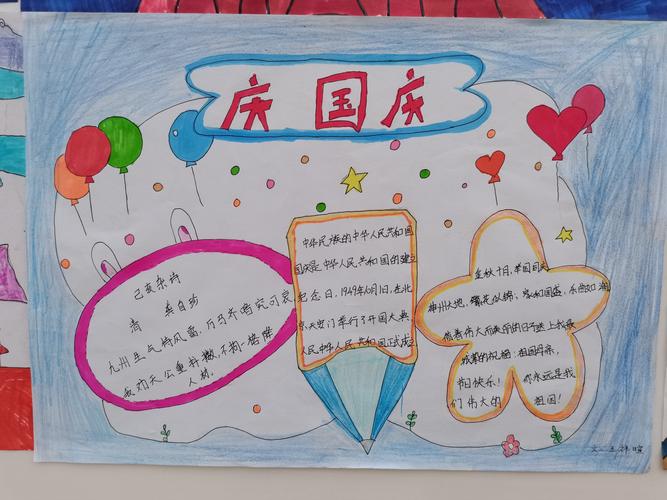 庆国庆
己亥杂诗
清 龚自珍
九州生气恃风雷，万马齐喑究可哀
我劝天公重抖擞，不拘一格降
人材
中华民族的中华人民共和国
国庆是中华人民共和国的建立
纪念日，1949年10月1日，在北
京天安门举行了开国大典
人民中华人民共和国正式成立
金秋十日，举国同庆
神州大地，繁花似锦，家和国盛，乐曲如潮
伟大而来的日子送上我最
诚挚的祝福：祖国母亲，
节日快乐！你永远是我
们伟大的 祖国！